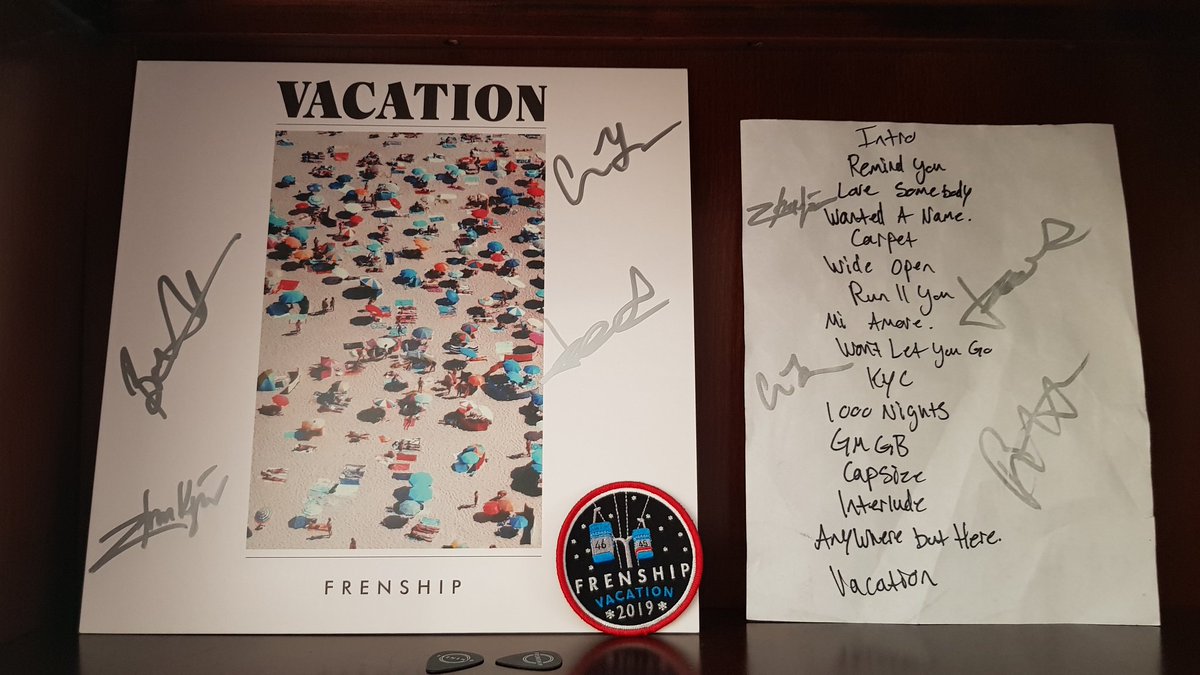 VACATION
FRENSHIP
46
43
FRENSHIP
VACATION
*2019*
Intro
Remind You
Love Somebody
Wanted A Name.
Carpet
Wide Open
Run II You
Mi Amore.
Won't Let You Go
KYC
1000 Nights
GMGB
Capsize
Interlude
Anywhere but Here.
Vacation